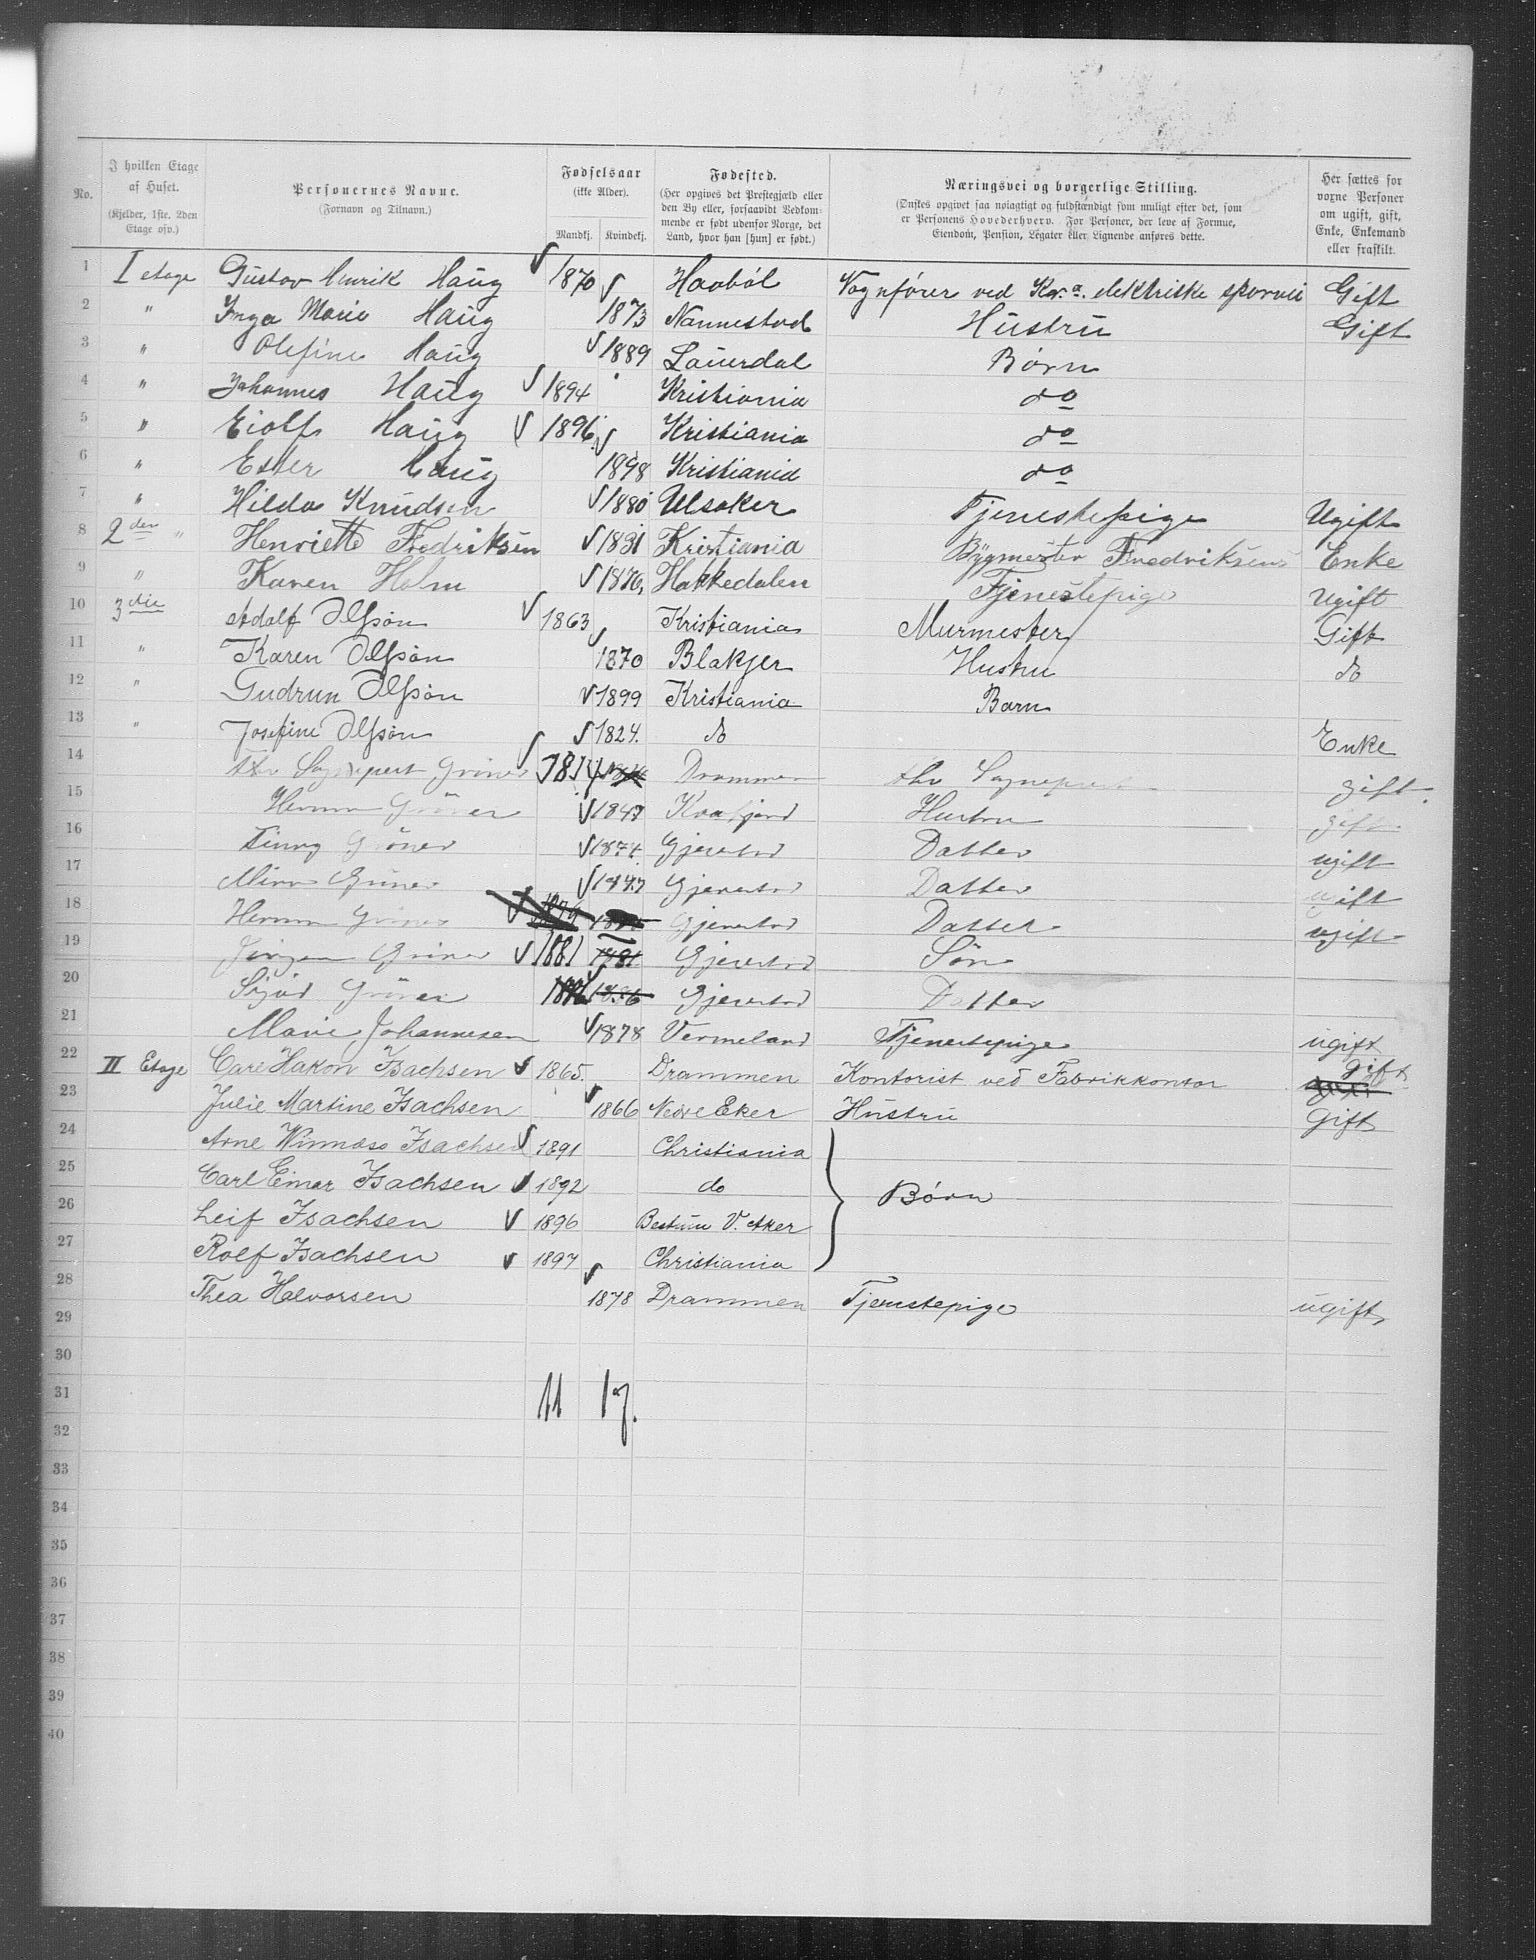 No.
I hvilken Etage af Huset.
(Kjelder, 1ste, 2den Etage osv.)
Personernes Navne.
(Fornavn og Tilnavn.)
Fødselsaar
(ikke Alder).
Mandkj. Kvindekj.
Fødested.
(Her opgives det Prestegjæld eller den By eller, forsaavidt Vedkommende er født udenfor Norge, det Land, hvor han [hun] er født.)
Næringsvei og borgerlige Stilling.
(Ønskes opgivet saa nøiagtigt og fuldstændigt som muligt efter det, som er Personens Hovederhverv. For Personer, der leve af Formue, Eiendom, Pension, Legater eller Lignende anføres dette.
Her sættes for voxne Personer om ugift, gift, Enke, Enkemand eller fraskilt.
1 I etage Gustav Henrik Haug 1870 Haabøl Vognfører ved Kr.a. elektriske sporvei Gift
2 " Inga Marie Haug 1873 Nannestad Hustru Gift
3 " Olefine Haug 1889 Laurdal Børn
4 " Johannes Haug 1894 Kristiania do
5 " Eiolf Haug 1896 Kristiania do
6 " Ester Haug 1898 Kristiania do
7 " Hilda Knudsen 1880 Ulsaker Tjenestepige Ugift
8 2den " Henriette Fredriksen 1831 Kristiania Bygmester Fredriksens Enke
9 " Karen Holm 1876 Hakkedalen Tjenestepige Ugift
10 3die Adolf Olssøn 1863 Kristiania Murmester Gift
11 " Karen Olssøn 1870 Blakjer Hustru do
12 " Gudrun Olssøn 1899 Kristiania Barn
13 " Josefine Olssøn 1824 do Enke
14 Grøner Drammen gift
15 Grøner 1847 Hustru gift
16 Grøner 1874 Gjerestad Datter ugift
17 Grøner Gjerestad Datter ugift
18 Grøner Gjerestad Datter ugift
19 Jørgen Grøner 1881 1881 Gjerestad Søn
20 Grøner 1886 Gjerestad Datter
21 Marie Johannesen 1878 Vermeland Tjenestepige ugift
22 II Etage Carl Hakon Isachsen 1865 Drammen Kontorist ved Fabrikkontor gift
23 Julie Martine Isachsen 1866 Nedre Eker Hustru Gift
24 Arne Isachsen 1891 Christiania
25 Carl Einar Isachsen 1892 do Børn
26 Leif Isachsen 1896 Bestum V. Aker
27 Rolf Isachsen 1897 Christiania
28 Thea Halvorsen 1878 Drammen Tjenestepige ugift
29
30
31 11 17.
32
33
34
35
36
37
38
39
40